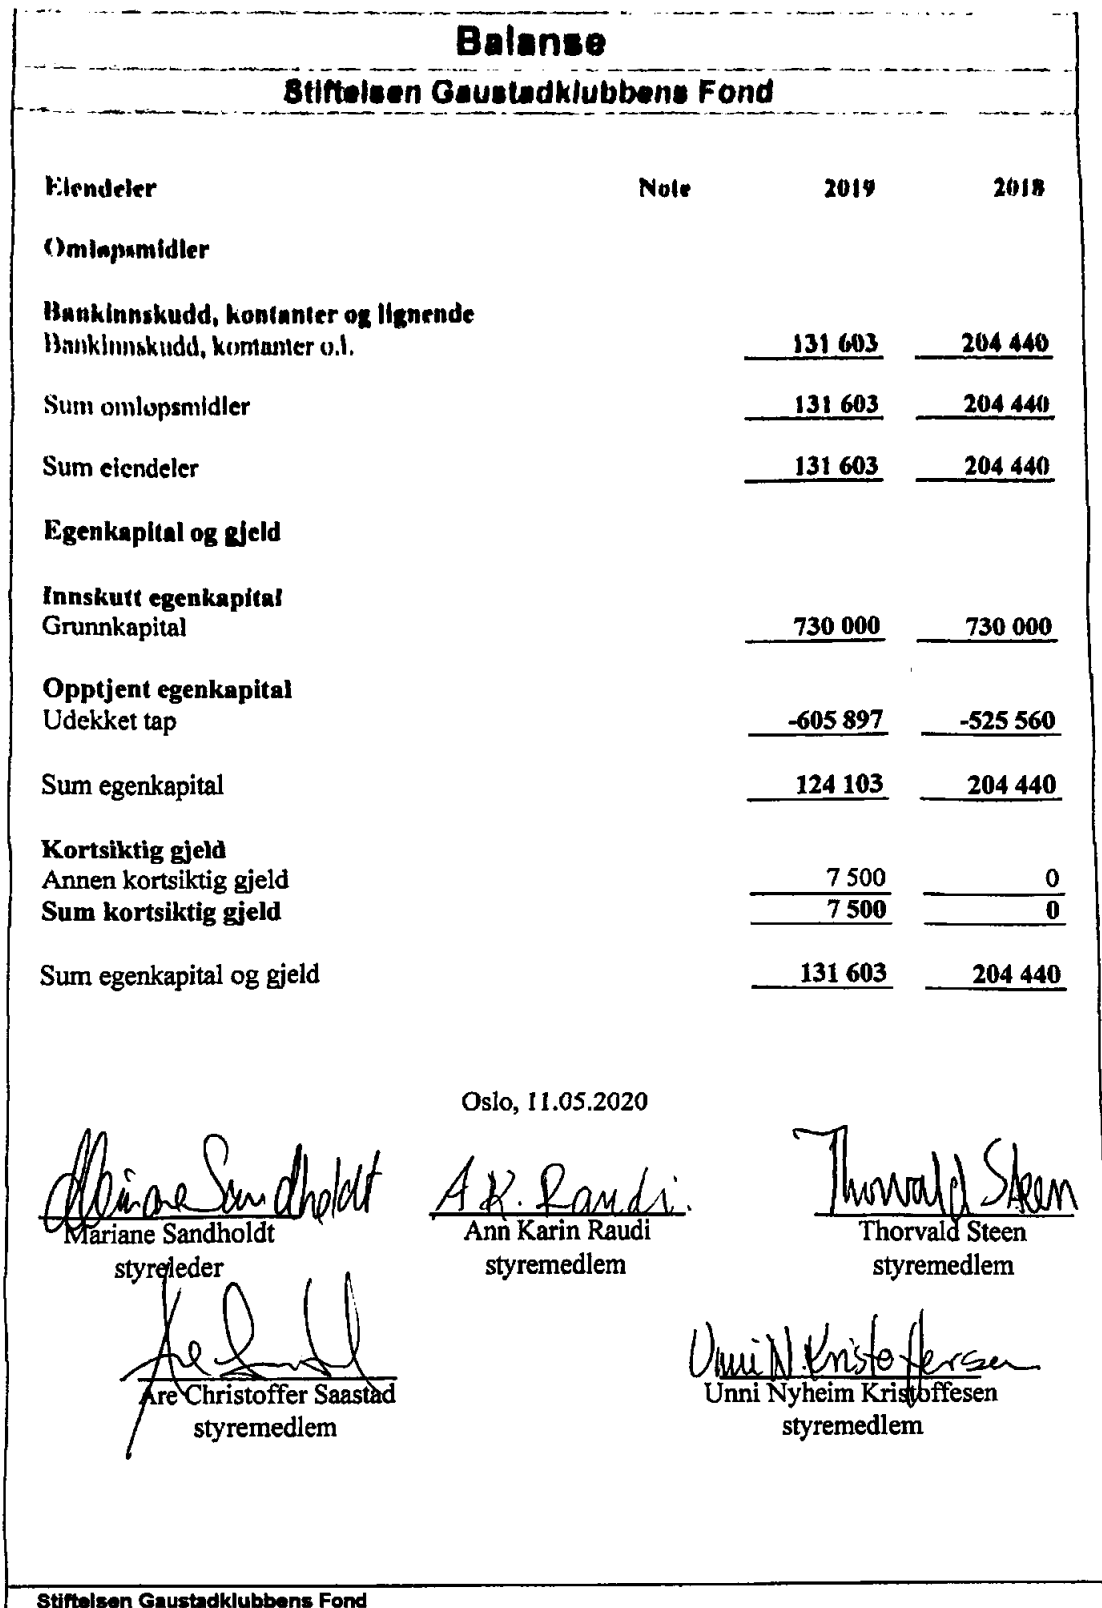 Balanse
Stiftelsen Gaustadklubbens Fond
Eiendeler Note 2019 2018
Omløpsmidler
Bankinnskudd, kontanter og lignende
Bankinnskudd, kontanter o.l. 131 603 204 440
Sum omløpsmidler 131 603 204 440
Sum eiendeler 131 603 204 440
Egenkapital og gjeld
Innskutt egenkapital
Grunnkapital 730 000 730 000
Opptjent egenkapital
Udekket tap -605 897 -525 560
Sum egenkapital 124 103 204 440
Kortsiktig gjeld
Annen kortsiktig gjeld 7 500 0
Sum kortsiktig gjeld 7 500 0
Sum egenkapital og gjeld 131 603 204 440
Oslo, 11.05.2020
Mariane Sandholdt A K. Raudi. Thorvald Steen
Mariane Sandholdt Ann Karin Raudi Thorvald Steen
styreleder styremedlem styremedlem
Unni N Kristoffersen
Are Christoffer Saastad Unni Nyheim Kristoffesen
styremedlem styremedlem
Stiftelsen Gaustadklubbens Fond